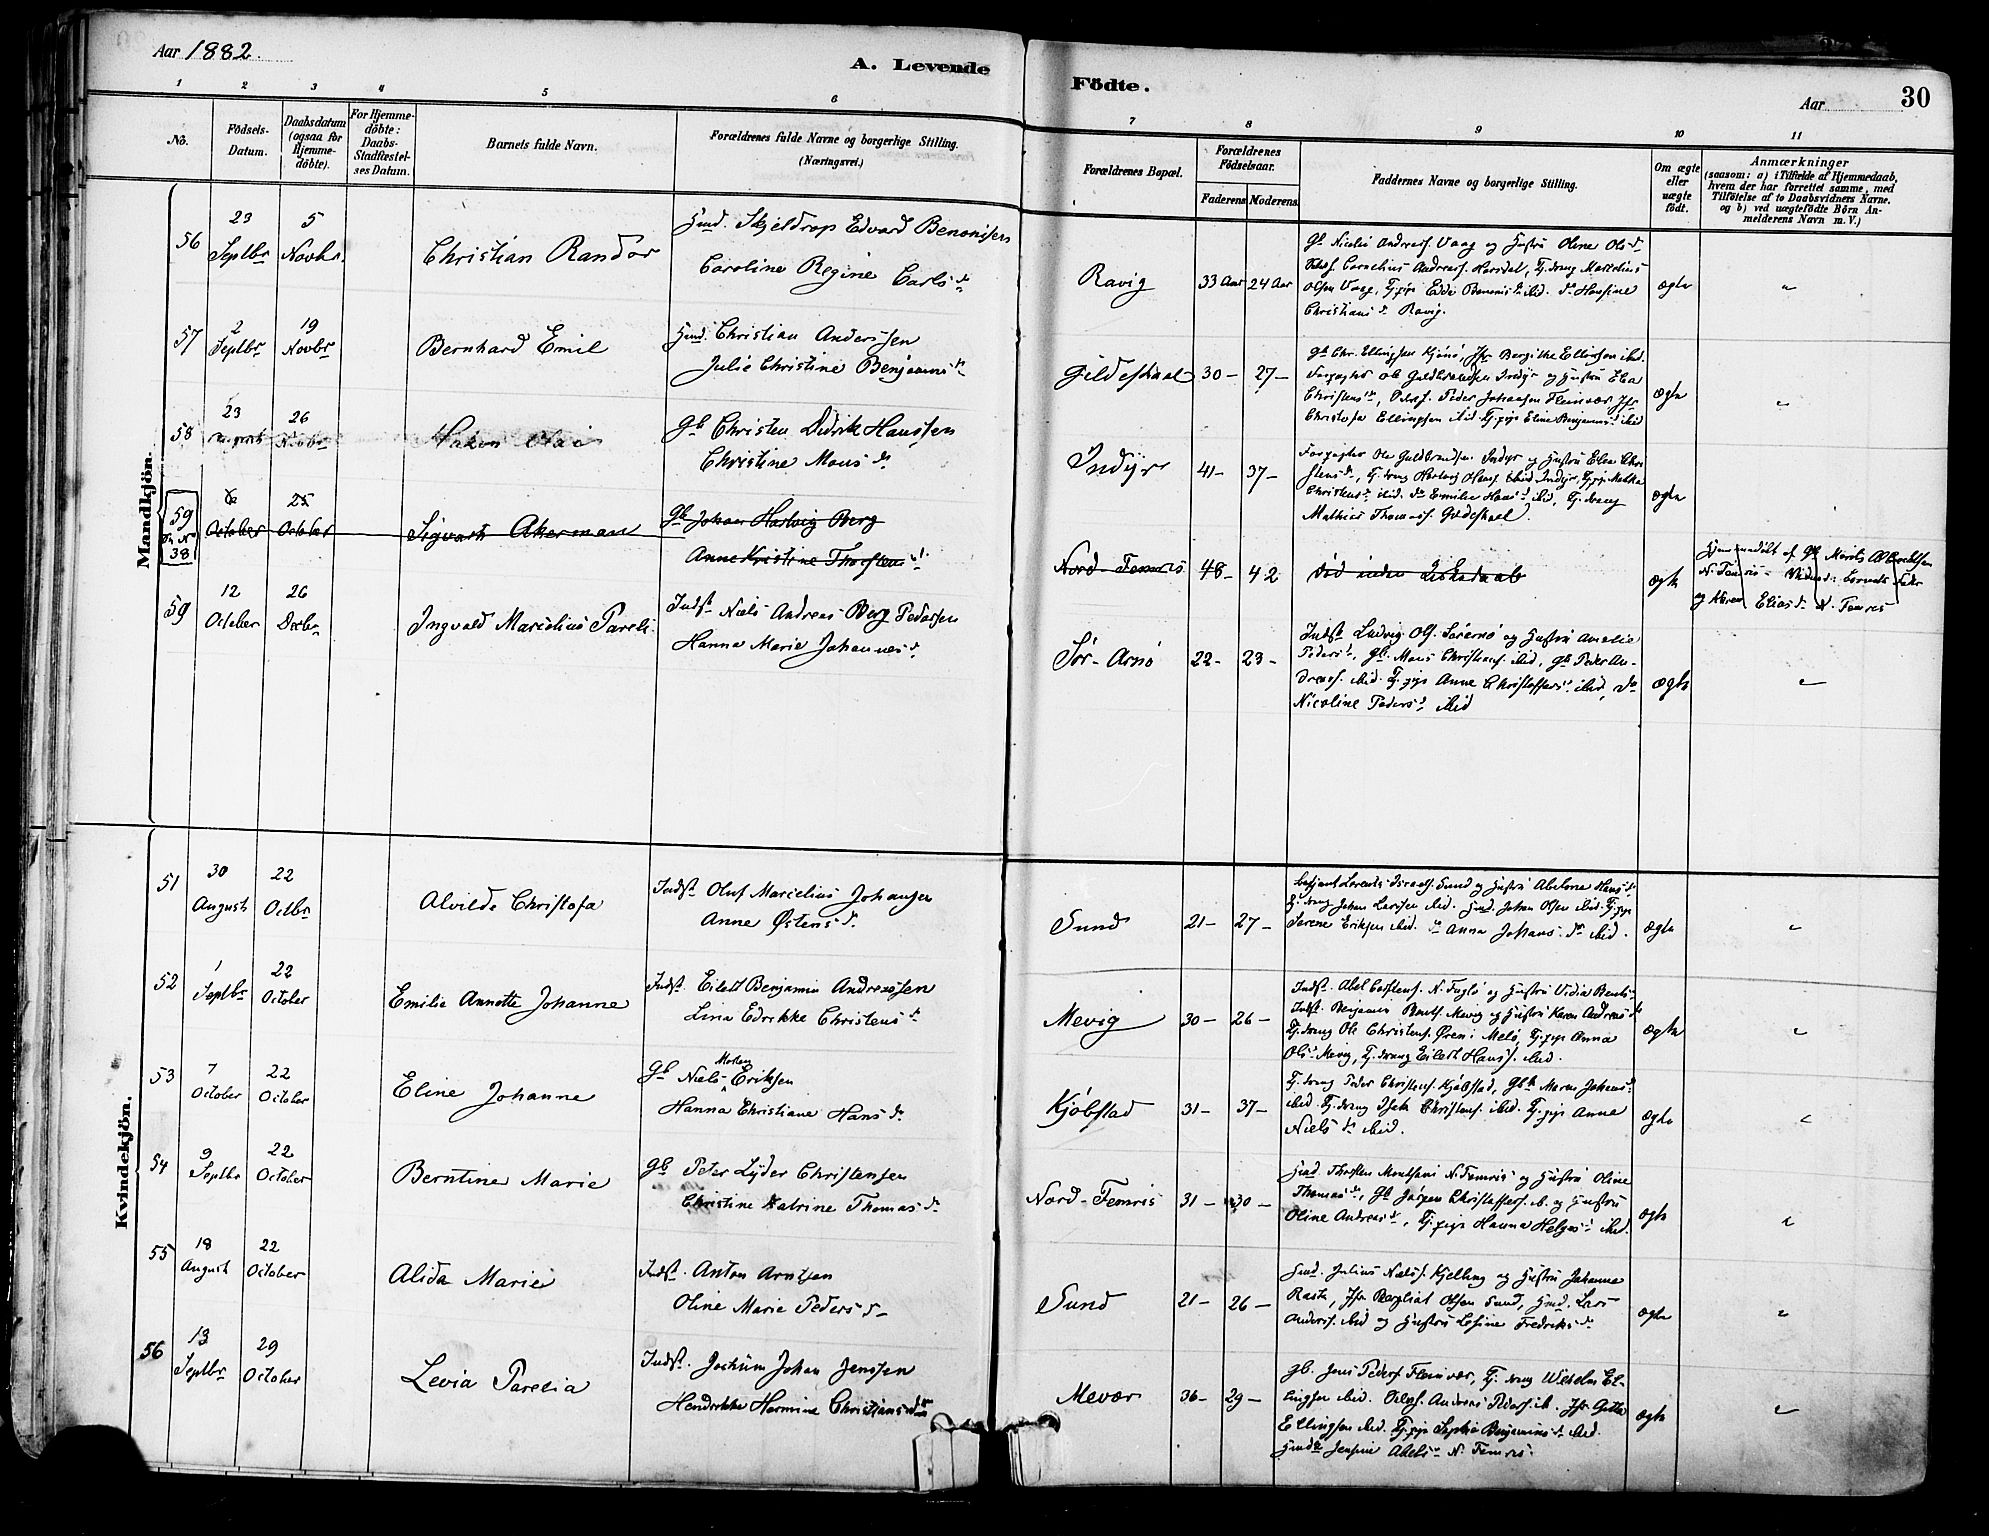 Aar 1882.
A. Levende
Födte.
Aar
30
1 2 3 4 5 6 7 8 9 10 11
No.
Födsels-
Datum.
Daabsdatum
(ogsaa for
Hjemme-
döbte).
For Hjemme-
döbte:
Daabs-
Stadfæstel-
ses Datum.
Barnets fulde Navn.
Forældrenes fulde Navne og borgerlige Stilling.
(Næringsvei.)
Forældrenes Bopæl.
Forældrenes
Födselsaar.
Faderens Moderens
Faddernes Navne og borgerlige Stilling.
Om ægte
eller
uægte
födt.
Anmærkninger
(saasom: a) i Tilfælde af Hjemmedaab,
hvem der har forrettet samme, med
Tilföielse af to Daabsvidners Navne.
og b) ved uægtefödte Börn An-
melderens Navn m. V.)
Mandkjön.
56
23 Septbr
5 Novbr.
Christian Randor
Hmd. Skjeldrop Edvard Benonisen
Caroline Regine Carlsd.
Ravig
33 Aar 24 Aar
Gb Nicolai Andreas. Vaag og Hustru Oline Olsd.
Cornelius Andreas. Horsdal, Tj. dreng Marselius
Olsen Vaag, Tj. pige Edda Benonisd. ibid. do Hansine
Christiansd. Ravig.
ægte
"
57
2 Septbr
19 Novbr
Bernhard Emil
Hmd. Christian Anderssen
Julie Christine Benjaminsd.
Gildeskaal
30 – 27 –
Gb Chr. Ellingsen Kjønø, Jfr Bergithe Ellingsen ibid.
Forpagter Ole Guldbrandsen Indyr og Hustru Elea
Christensd., Peder Johansen Fleinvær Jfr
Christofa Ellingsen ibid. Tj. pige Eline Benjaminsd. ibid
ægte
"
58
23 August
26 Novbr
Hakon Olai
Gb Christen Didrik Hanssen
Christine Monsd.
Indyr
41 – 37 –
Forpagter Ole Guldbrandsen Indyr og Hustru Elea Chri-
stensd., Tj. dreng Hartvig Hans. ibid Indyr, Tj. pige
Christensd. ibid. do Emilie Hansd. ibid, Tj. dreng
Mathias Thomas. Gildeskaal.
ægte
59
38
6 October
25 October
Sigvart Akerman
Gb Johan Hartvig Berg
Anne Kristine Thorstensd.
Nord-Femris
48 – 42
død inden Daab
ægte
Hjemmedøbt af Gb Morits Albrechtsen
N. Femris – Vidner: Barnets Fader
og Karen Eliasd. N. Femris
59
12 October
26 Decbr
Ingvald Marselius Pareli.
Indst. Niels Andreas Berg Pedersen
Hanna Marie Johannesd.
Sør-Arnø
22 – 23 –
Indst. Ludvig Ols. Sørarnø og Hustru Amalie
Pedersd., Gb. Mons Christens. ibid, Gb Peder An-
dreas. ibid. Tj. pige Anne Christoffersd. ibid, do
Nicoline Pedersd. ibid
ægte
"
Kvindekjön.
51
30 August
22 Octbr
Alvilde Christofa
Indst. Oluf Marselius Johansen
Anne Østensd.
Sund
21 – 27 –
Betjent Lorents Sund og Hustru Abelone Hansd.
Tj. dreng Johan Larssen ibid. Hmd. Johan Olsen ibid. Tj. pige
Serene Eriksen ibid. do Anna Johansd. ibid.
ægte
"
52
1 Septbr
22 October
Emilie Annette Johanne
Indst. Eilert Benjamin Andreasen
Lina Edrikke Christensd.
Mevig
30 – 26 –
Indst. Abel Carstens. N. Fuglø og Hustru Vidia Bents-
Indst. Benjamin Bents. Mevig og Hustru Karen Andreasd.
Tj. dreng Ole Christens. Øren i Melø, Tj. pige Anna
Olsd. Mevig, Tj. dreng Eilert Hans. ibid.
ægte
"
53
7 October
22 October
Eline Johanne
Gb Niels Morten Eriksen
Hanna Christiane Hansd.
Kjøbstad
31 – 37 –
Tj. dreng Peder Christens. Kjøbstad, Gbk Maren Johansd.
ibid. Tj. dreng Isak Christens. ibid. Tj. pige Anne
Nielsd. ibid.
ægte
"
54
9 Septbr
22 October
Berntine Marie
Gb Peter Lyder Christensen
Christine Katrine Thomasd.
Nord-Femris
31 – 30 –
Hmd. Thorsten N. Femris og Hustru Oline
Thomasd., Gb Jørgen Christoffers. ib. og Hustru
Oline Andreasd., Tj. pige Hanna Helgesd. ibid.
ægte
"
55
18 August
22 October
Alida Marie
Indst. Anton Arntsen
Oline Marie Pedersd.
Sund
21 – 26 –
Hmd. Julius Niels. Kjelling og Hustru Johanna
Rasch, Jfr Bergliot Olsen Sund, Hmd. Lars
Anders. ibid og Hustru Losine Fredriksd.
ægte
"
56
13 Septbr
29 October
Levia Parelia
Indst. Jochum Johan Jenssen
Hendrikke Hermine Christiansdtr
Mevær
36 – 29 –
Gb. Jens Peders Fleinvær, Tj. dreng Wilhelm El-
lingsen ibid. Andreas Peders. ib. Jfr Gitta
Ellingsen ibid. Tj. pige Sophie Benjaminsd. ibid.
Jensine Abelsd. N. Femris.
ægte
"